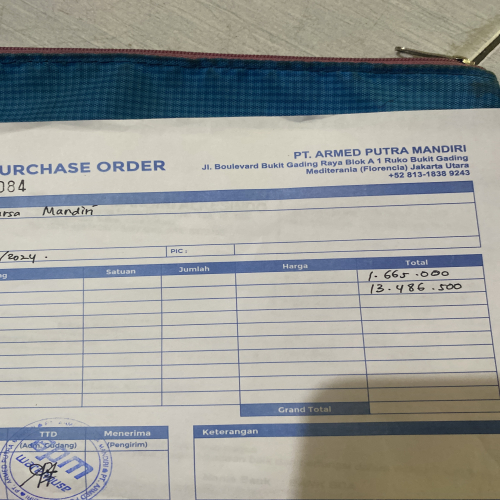 PURCHASE ORDER
PT. ARMED PUTRA MANDIRI
Jl. Boulevard Bukit Gading Raya Blok A 1 Ruko Bukit Gading
Mediterania (Florencia) Jakarta Utara
+52 813-1838 9243
084
Mandiri
/2024.
PIC :
Satuan Jumlah Harga Total
1.665.000
13.486.500
Grand Total
TTD Menerima Keterangan
(Adm. Gudang) (Pengirim)